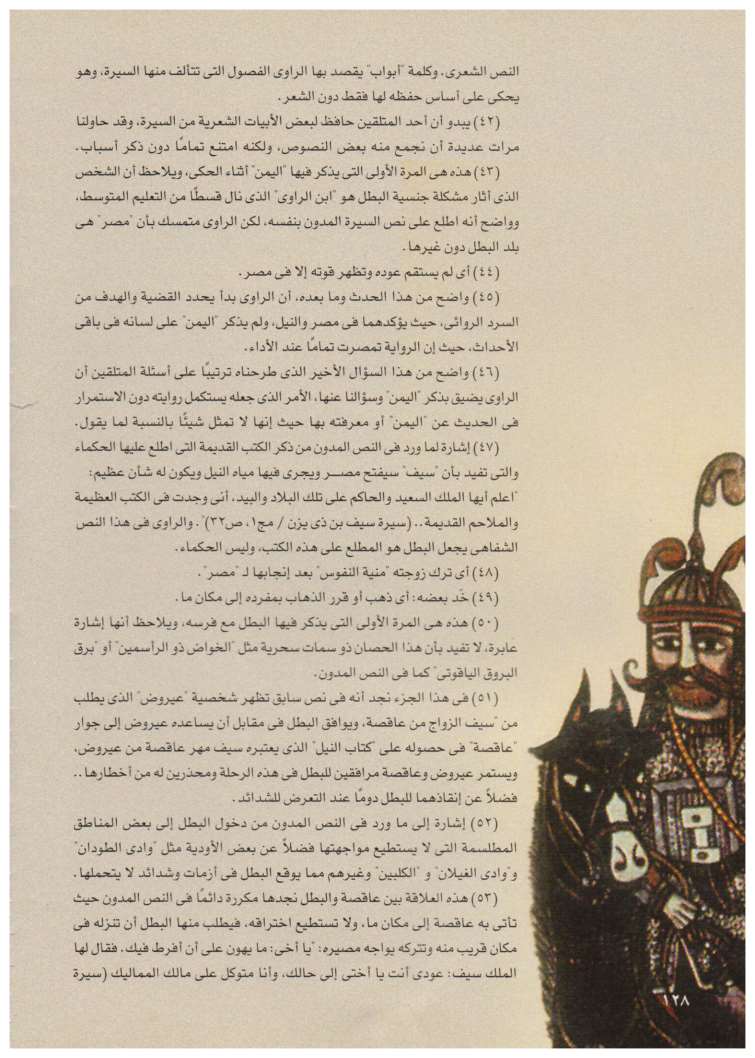 النص الشعرى، وكلمة "أبواب" يقصد بها الراوى الفصول التى تتألف منها السيرة، وهو
يحكى على أساس حفظه لها فقط دون الشعر.
(٤٢) يبدو أن أحد المتلقين حافظ لبعض الأبيات الشعرية من السيرة، وقد حاولنا
مرات عديدة أن نجمع منه بعض النصوص، ولكنه امتنع تمامًا دون ذكر أسباب.
(٤٣) هذه هى المرة الأولى التى يذكر فيها "اليمن" أثناء الحكى، ويلاحظ أن الشخص
الذى أثار مشكلة جنسية البطل هو "ابن الراوى" الذى نال قسطًا من التعليم المتوسط،
وواضح أنه اطلع على نص السيرة المدون بنفسه، لكن الراوى متمسك بأن "مصر" هى
بلد البطل دون غيرها.
(٤٤) أى لم يستقم عوده وتظهر قوته إلا فى مصر.
(٤٥) واضح من هذا الحدث وما بعده، أن الراوى بدأ يحدد القضية والهدف من
السرد الروائى، حيث يؤكدهما فى مصر والنيل، ولم يذكر "اليمن" على لسانه فى باقى
الأحداث، حيث إن الرواية تمصرت تمامًا عند الأداء.
(٤٦) واضح من هذا السؤال الأخير الذى طرحناه ترتيبًا على أسئلة المتلقين أن
الراوى يضيق بذكر "اليمن" وسؤالنا عنها، الأمر الذى جعله يستكمل روايته دون الاستمرار
فى الحديث عن "اليمن" أو معرفته بها حيث إنها لا تمثل شيئًا بالنسبة لما يقول.
(٤٧) إشارة لما ورد فى النص المدون من ذكر الكتب القديمة التى اطلع عليها الحكماء
والتى تفيد بأن "سيف" سيفتح مصـــر ويجرى فيها مياه النيل ويكون له شأن عظيم:
"اعلم أيها الملك السعيد والحاكم على تلك البلاد والبيد، أنى وجدت فى الكتب العظيمة
والملاحم القديمة.. (سيرة سيف بن ذى يزن / مج١، ص٣٢)". والراوى فى هذا النص
الشفاهى يجعل البطل هو المطلع على هذه الكتب، وليس الحكماء.
(٤٨) أى ترك زوجته "منية النفوس" بعد إنجابها لـ "مصر".
(٤٩) خَد بعضه: أى ذهب أو قرر الذهاب بمفرده إلى مكان ما.
(٥٠) هذه هى المرة الأولى التى يذكر فيها البطل مع فرسه، ويلاحظ أنها إشارة
عابرة، لا تفيد بأن هذا الحصان ذو سمات سحرية مثل "الخواض ذو الرأسمين" أو "برق
البروق الياقوتى" كما فى النص المدون.
(٥١) فى هذا الجزء نجد أنه فى نص سابق تظهر شخصية "عيروض" الذى يطلب
من "سيف الزواج من عاقصة، ويوافق البطل فى مقابل أن يساعده عيروض إلى جوار
"عاقصة" فى حصوله على "كتاب النيل" الذى يعتبره سيف مهر عاقصة من عيروض،
ويستمر عيروض وعاقصة مرافقين للبطل فى هذه الرحلة ومحذرين له من أخطارها..
فضلاً عن إنقاذهما للبطل دومًا عند التعرض للشدائد.
(٥٢) إشارة إلى ما ورد فى النص المدون من دخول البطل إلى بعض المناطق
المطلسمة التى لا يستطيع مواجهتها فضلاً عن بعض الأودية مثل "وادى الطودان"
و"وادى الغيلان" و "الكلبين" وغيرهم مما يوقع البطل فى أزمات وشدائد لا يتحملها.
(٥٣) هذه العلاقة بين عاقصة والبطل نجدها مكررة دائمًا فى النص المدون حيث
تأتى به عاقصة إلى مكان ما، ولا تستطيع اختراقه، فيطلب منها البطل أن تنزله فى
مكان قريب منه وتتركه يواجه مصيره: "يا أخى: ما يهون على أن أفرط فيك، فقال لها
الملك سيف: عودى أنت يا أختى إلى حالك، وأنا متوكل على مالك المماليك (سيرة
١٢٨